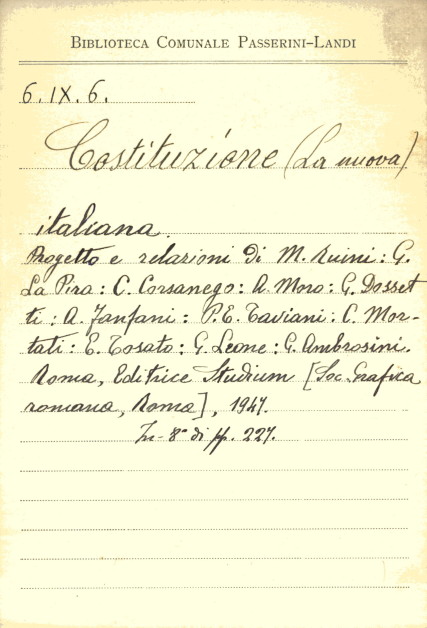 BIBLIOTECA COMUNALE PASSERINI-LANDI
6. IX. 6.
Costituzione (La nuova)
italiana.
Progetto e relazioni di M. Ruini: G.
La Pira: C. Corsanego: A. Moro: G. Dosset-
ti: A. Fanfani: P.E. Taviani: C. Mor-
tati: E. Tosato: G. Leone: G. Ambrosini.
Roma, Editrice Studium [Soc. Grafica
romana, Roma], 1947.
In-8° di pp. 227.